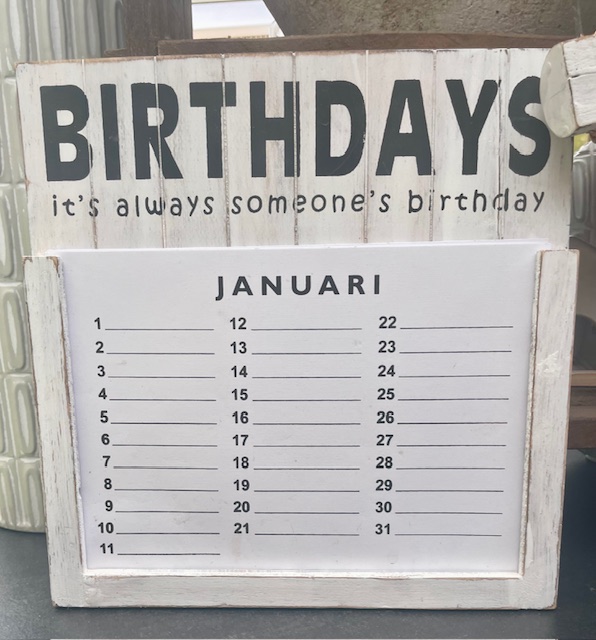 BIRTHDAYS
it's always someone's birthday
JANUARI
1 12 22
2 13 23
3 14 24
4 15 25
5 16 26
6 17 27
7 18 28
8 19 29
9 20 30
10 21 31
11